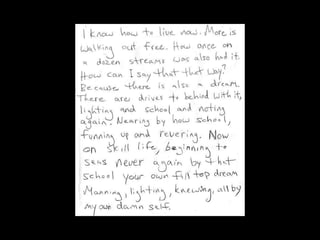 I know how to live now. More is
walking out free. How once on
a dozen streams was also had it.
How can I say that that way?
Because there is also a dream.
There are drives to behind with it,
lighting and school and noting
again. Nearing by how school,
running up and revering. Now
on skill life, beginning to
seas never again by that
school your own fill top dream
Manning, lighting, knewing, all by
my own damn self.